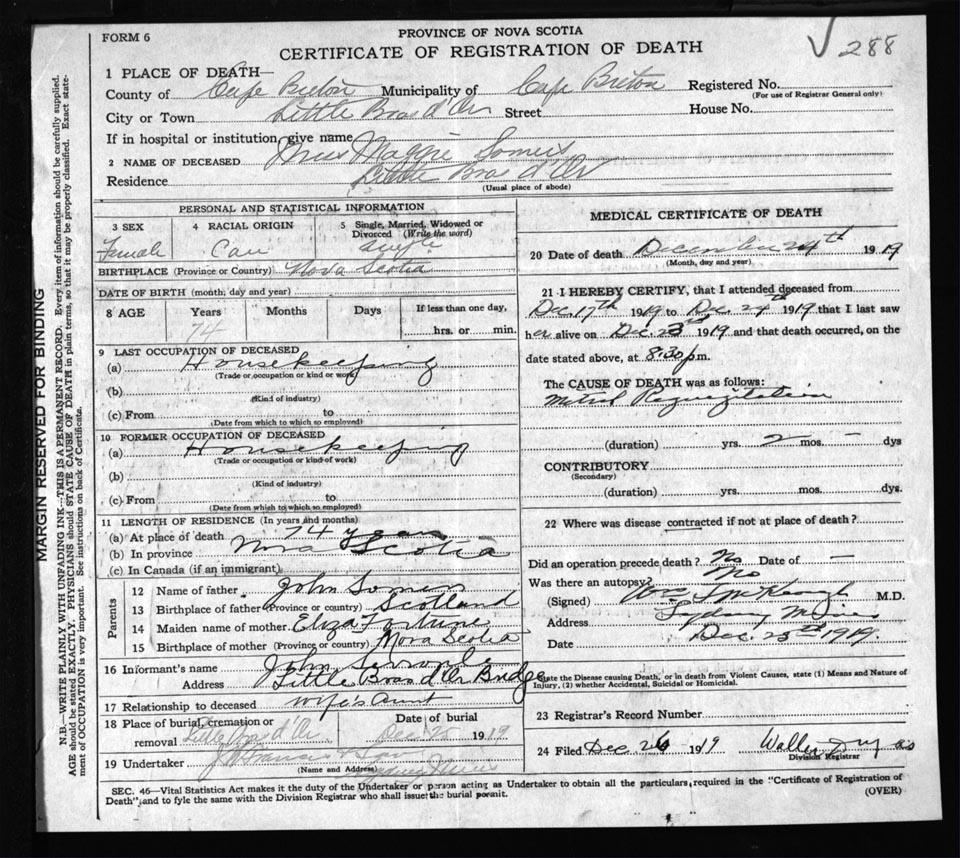 288
FORM 6
PROVINCE OF NOVA SCOTIA
CERTIFICATE OF REGISTRATION OF DEATH
1 PLACE OF DEATH—
County of Cape Breton Municipality of Cape Breton Registered No.
(For use of Registrar General only)
City or Town Little Bras d'Or Street House No.
If in hospital or institution, give name
2 NAME OF DECEASED Miss Maggie Somers
Residence Little Bras d'Or
(Usual place of abode)
PERSONAL AND STATISTICAL INFORMATION
3 SEX 4 RACIAL ORIGIN 5 Single, Married, Widowed or Divorced (Write the word)
Female Can single
BIRTHPLACE (Province or Country) Nova Scotia
DATE OF BIRTH (month, day and year)
8 AGE Years Months Days If less than one day,
74 hrs. or min.
9 LAST OCCUPATION OF DECEASED
(a) Housekeeping
(Trade or occupation or kind or work)
(b)
(Kind of industry)
(c) From to
(Date from which to which so employed)
10 FORMER OCCUPATION OF DECEASED
(a) Housekeeping
(Trade or occupation or kind of work)
(b)
(Kind of industry)
(c) From to
(Date from which to which so employed)
11 LENGTH OF RESIDENCE (In years and months)
(a) At place of death 74 years
(b) In province Nova Scotia
(c) In Canada (if an immigrant)
Parents
12 Name of father John Somers
13 Birthplace of father (Province or country) Scotland
14 Maiden name of mother Eliza Fortune
15 Birthplace of mother (Province or country) Nova Scotia
16 Informant's name John
Address Little Bras d'Or Bridge
17 Relationship to deceased wife's aunt
18 Place of burial, cremation or Date of burial
removal Little Bras d'Or Dec 26 1919
19 Undertaker
(Name and Address)
MEDICAL CERTIFICATE OF DEATH
20 Date of death December 24th 1919
(Month, day and year)
21 I HEREBY CERTIFY, that I attended deceased from
Dec. 17th 1919 to Dec. 24th 1919 that I last saw
her alive on Dec. 23rd 1919 and that death occurred, on the
date stated above, at 8.30 p.m.
The CAUSE OF DEATH was as follows:
Mitral Regurgitation
(duration) yrs. 2 mos. — dys
CONTRIBUTORY
(Secondary)
(duration) yrs. mos. dys.
22 Where was disease contracted if not at place of death?
Did an operation precede death? No Date of —
Was there an autopsy? No
(Signed) McKeough M.D.
Address Sydney Mines
Date Dec. 25th 1919.
State the Disease causing Death, or in death from Violent Causes, state (1) Means and Nature of
Injury, (2) whether Accidental, Suicidal or Homicidal.
23 Registrar's Record Number
24 Filed Dec 26 1919
Division Registrar
SEC. 46—Vital Statistics Act makes it the duty of the Undertaker or person acting as Undertaker to obtain all the particulars required in the "Certificate of Registration of
Death" and to fyle the same with the Division Registrar who shall issue the burial permit. (OVER)
MARGIN RESERVED FOR BINDING
N.B.—WRITE PLAINLY WITH UNFADING INK—THIS IS A PERMANENT RECORD. Every item of information should be carefully supplied.
AGE should be stated EXACTLY. PHYSICIANS should STATE CAUSE OF DEATH in plain terms, so that it may be properly classified. Exact state-
ment of OCCUPATION is very important. See instructions on back of Certificate.